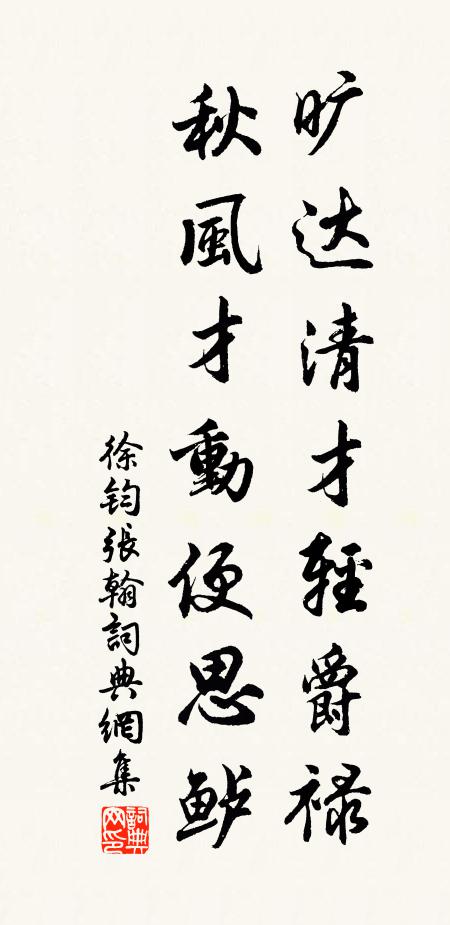 旷达清才輕爵禄
秋風才動便思鲈
徐钧張翰詞典網集
詞典网印